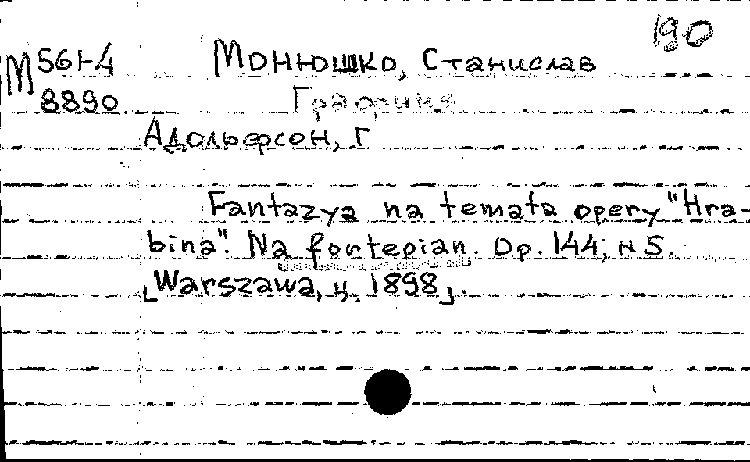 190
М 561-4 Монюшко, Станислав
8890 Графиня
Адольфсон, Г
Fantazya na temata opery "Hra-
bina". Na fortepian. Op. 144; н 5.
[Warszawa, ц. 1898].